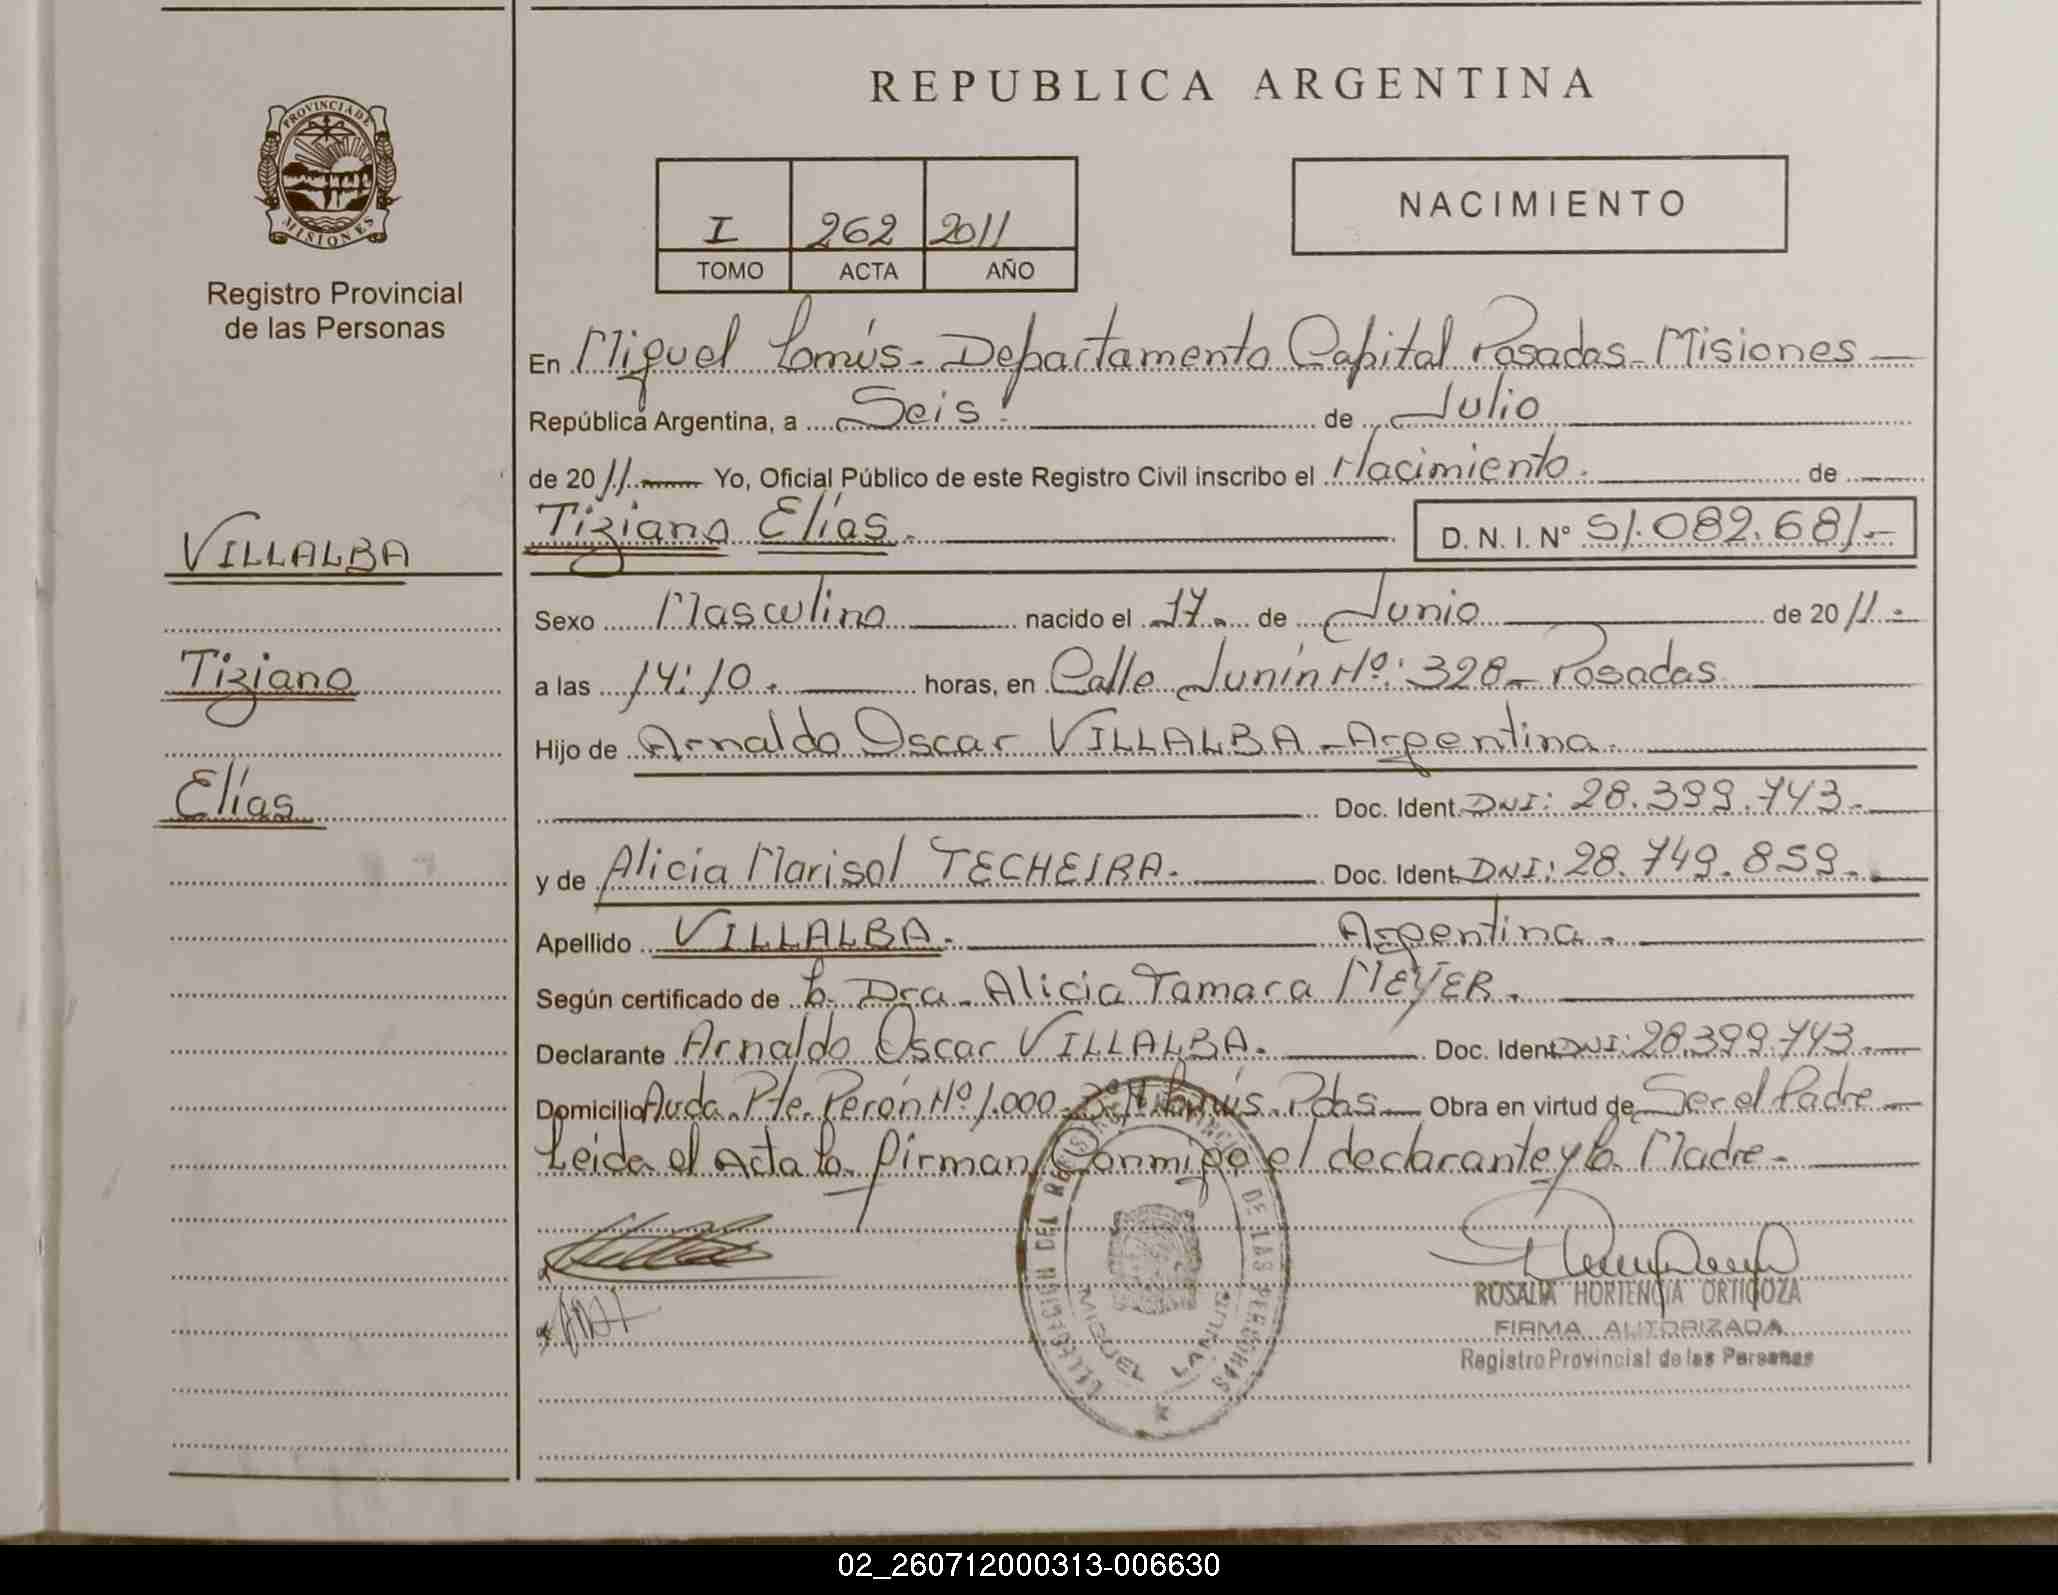 REPUBLICA ARGENTINA
PROVINCIA DE
MISIONES
Registro Provincial
de las Personas
I 262 2011
TOMO ACTA AÑO
NACIMIENTO
En Miguel Lanús - Departamento Capital Posadas - Misiones
República Argentina, a Seis. de Julio
de 2011 Yo, Oficial Público de este Registro Civil inscribo el Nacimiento. de
VILLALBA
Tiziano
Elías
Tiziano Elías. D. N. I. Nº 51.082.681.-
Sexo Masculino nacido el 17. de Junio de 2011.-
a las 14:10. horas, en Calle Junín Nº: 328 - Posadas
Hijo de Arnaldo Oscar VILLALBA - Argentina.
Doc. Ident. DNI: 28.399.743.-
y de Alicia Marisol TECHEIRA. Doc. Ident. DNI: 28.749.859.-
Apellido VILLALBA. Argentina.
Según certificado de la Dra. Alicia Tamara MEYER.
Declarante Arnaldo Oscar VILLALBA. Doc. Ident. DNI: 28.399.743.-
Domicilio Avda. Pte. Perón Nº 1.000 Lanús. Pdas Obra en virtud de Ser el Padre
Leída el Acta la firman Conmigo el declarante y la Madre -
DEL REGISTRO PROVINCIAL DE LAS PERSONAS
MIGUEL LANUS
ROSALIA HORTENCIA ORTIGOZA
FIRMA AUTORIZADA
Registro Provincial de las Personas
02_260712000313-006630